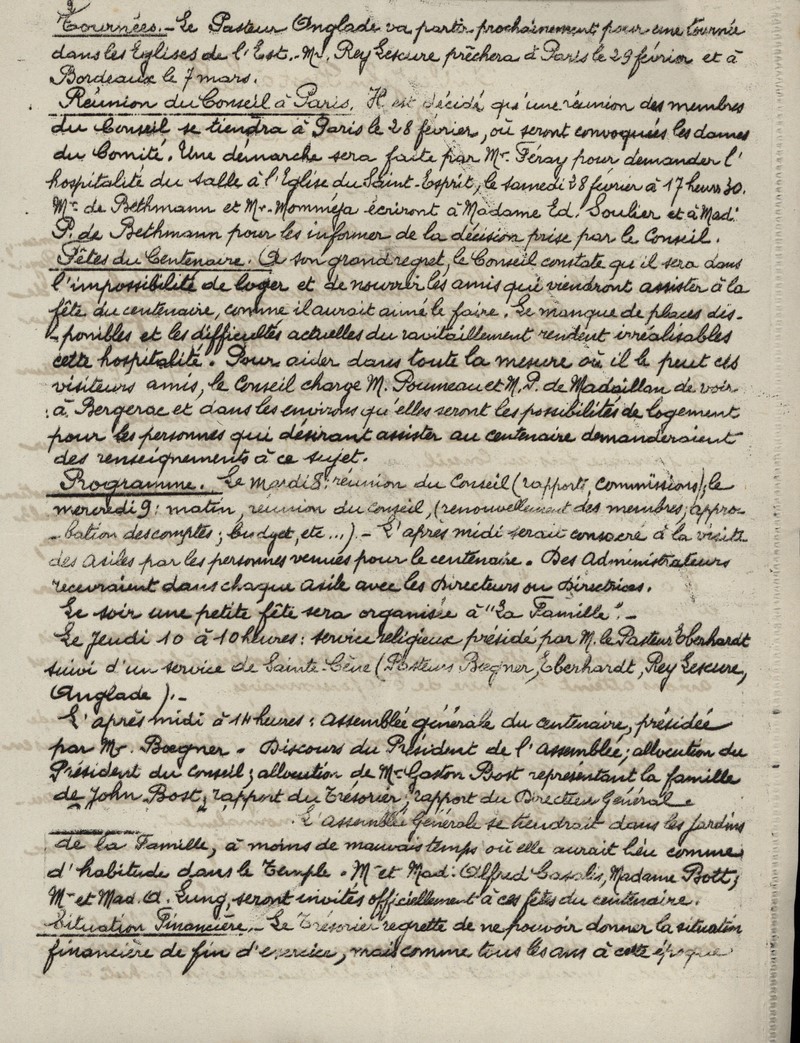 Tournées. - Le Pasteur Anglade va partir prochainement pour une tournée
dans les Eglises de l'Est. - Mr. Rey Lescure prêchera à Paris le 29 février et à
Bordeaux le 7 mars.
Réunion du Conseil à Paris. Il est décidé qu'une réunion des membres
du Conseil se tiendra à Paris le 28 février, où seront convoquées les dames
du Comité. Une démarche sera faite par Mr. Féray pour demander l'
hospitalité du salle à l'Eglise du Saint-Esprit, le samedi 28 février à 17 heures 30.
Mr. de Bethmann et Mr. Momméja écriront à Madame Ed. Soulier et à Mad.
P. de Bethmann pour les informer de la décision prise par le Conseil.
Fêtes du Centenaire. A son grand regret, le Conseil constate qu'il sera dans
l'impossibilité de loger et de nourrir les amis qui viendront assister à la
fête du centenaire, comme il aurait aimé le faire. Le manque de places dis-
-ponibles et les difficultés actuelles du ravitaillement rendent irréalisables
cette hospitalité. Pour aider dans toute la mesure où il le peut ces
visiteurs amis, le Conseil charge M. Poumeau et M. P. de Madaillan de voir
à Bergerac et dans les environs qu'elles seront les possibilités de logement
pour les personnes qui désirant assister au centenaire demanderaient
des renseignements à ce sujet.
Programme. Le mardi 8: réunion du Conseil (rapports, commissions); le
mercredi 9: matin, réunion du conseil, (renouvellement des membres, appro-
-bation des comptes, budget, etc...) - L'après midi serait consacré à la visite
des Asiles par les personnes venues pour le centenaire. Des Administrateurs
recevraient dans chaque Asile avec les Directeurs ou Directrices.
Le soir une petite fête sera organisée à "La Famille". -
Le Jeudi 10 à 10 heures: service religieux présidé par M. le Pasteur Eberhardt
suivi d'un service de Sainte-Cène (Pasteurs Bœgner, Eberhardt, Rey Lescure,
Anglade). -
L'après midi à 14 heures: Assemblée générale du centenaire, présidée
par Mr. Bœgner. Discours du Président de l'Assemblée; allocution du
Président du Conseil; allocution de Mr. Gaston Bost représentant la famille
de John Bost; rapport du Trésorier; rapport du Directeur Général.
L'Assemblée Générale se tiendrait dans les Jardins
de la Famille, à moins de mauvais temps où elle aurait lieu comme
d'habitude dans le Temple. Mr et Mad. Alfred Casalis, Madame Bott;
Mr et Mad. A. Lung, seront invités officiellement à ces fêtes du centenaire.
Situation Financière. - Le Trésorier regrette de ne pouvoir donner la situation
financière de fin d'exercice, mais comme tous les ans à cette époque